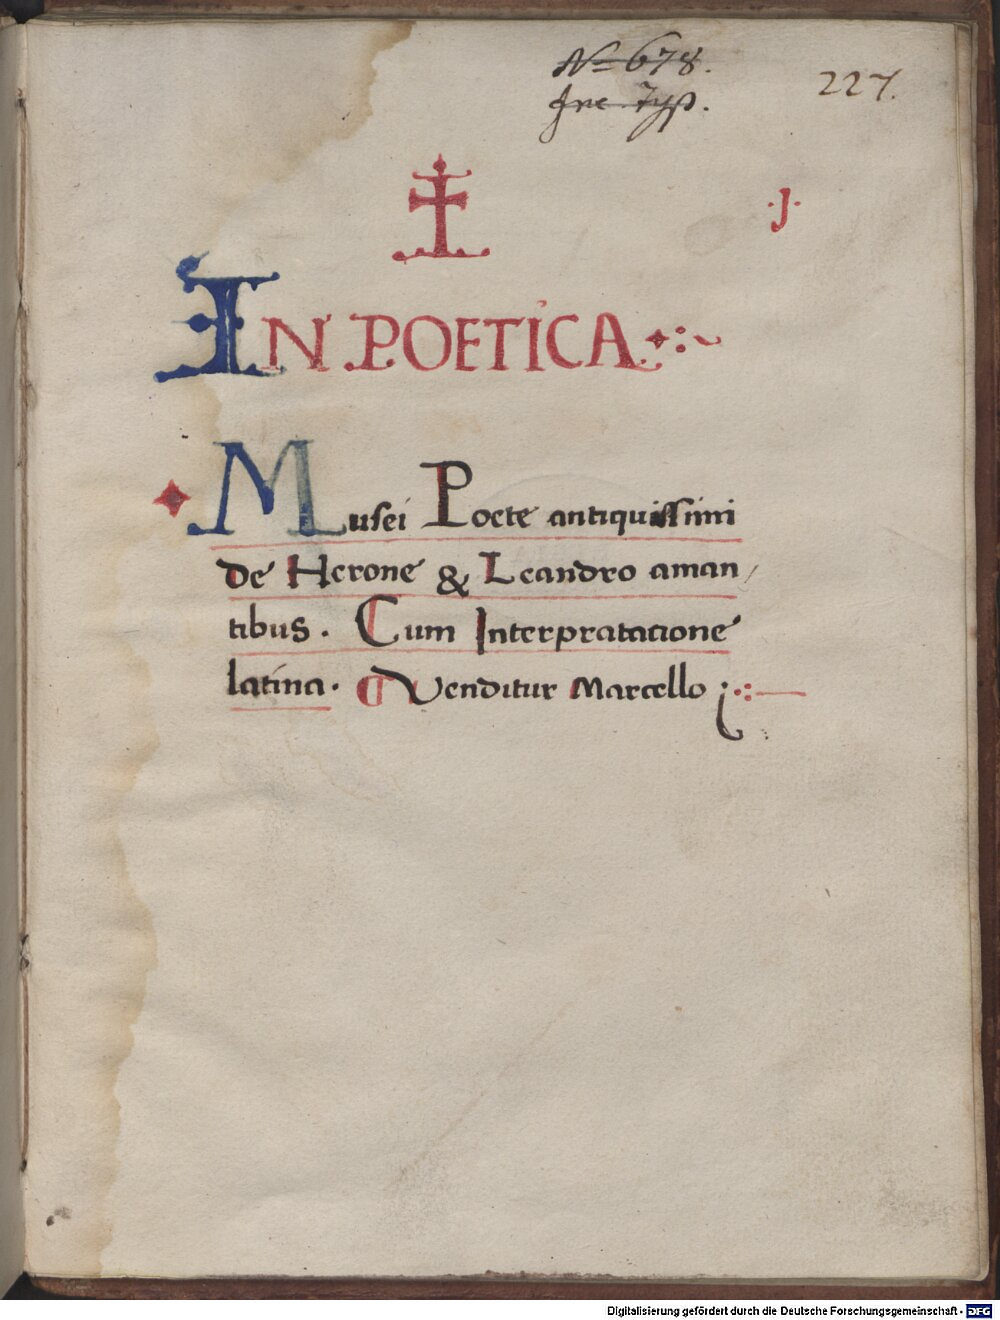 N= 678.
Inc. Typ.
227.
·J·
IN POETICA
Musei Poete antiquissimi
de Herone & Leandro aman/
tibus. Cum Interpratatione
latina. Venditur Marcello
Digitalisierung gefördert durch die Deutsche Forschungsgemeinschaft - DFG